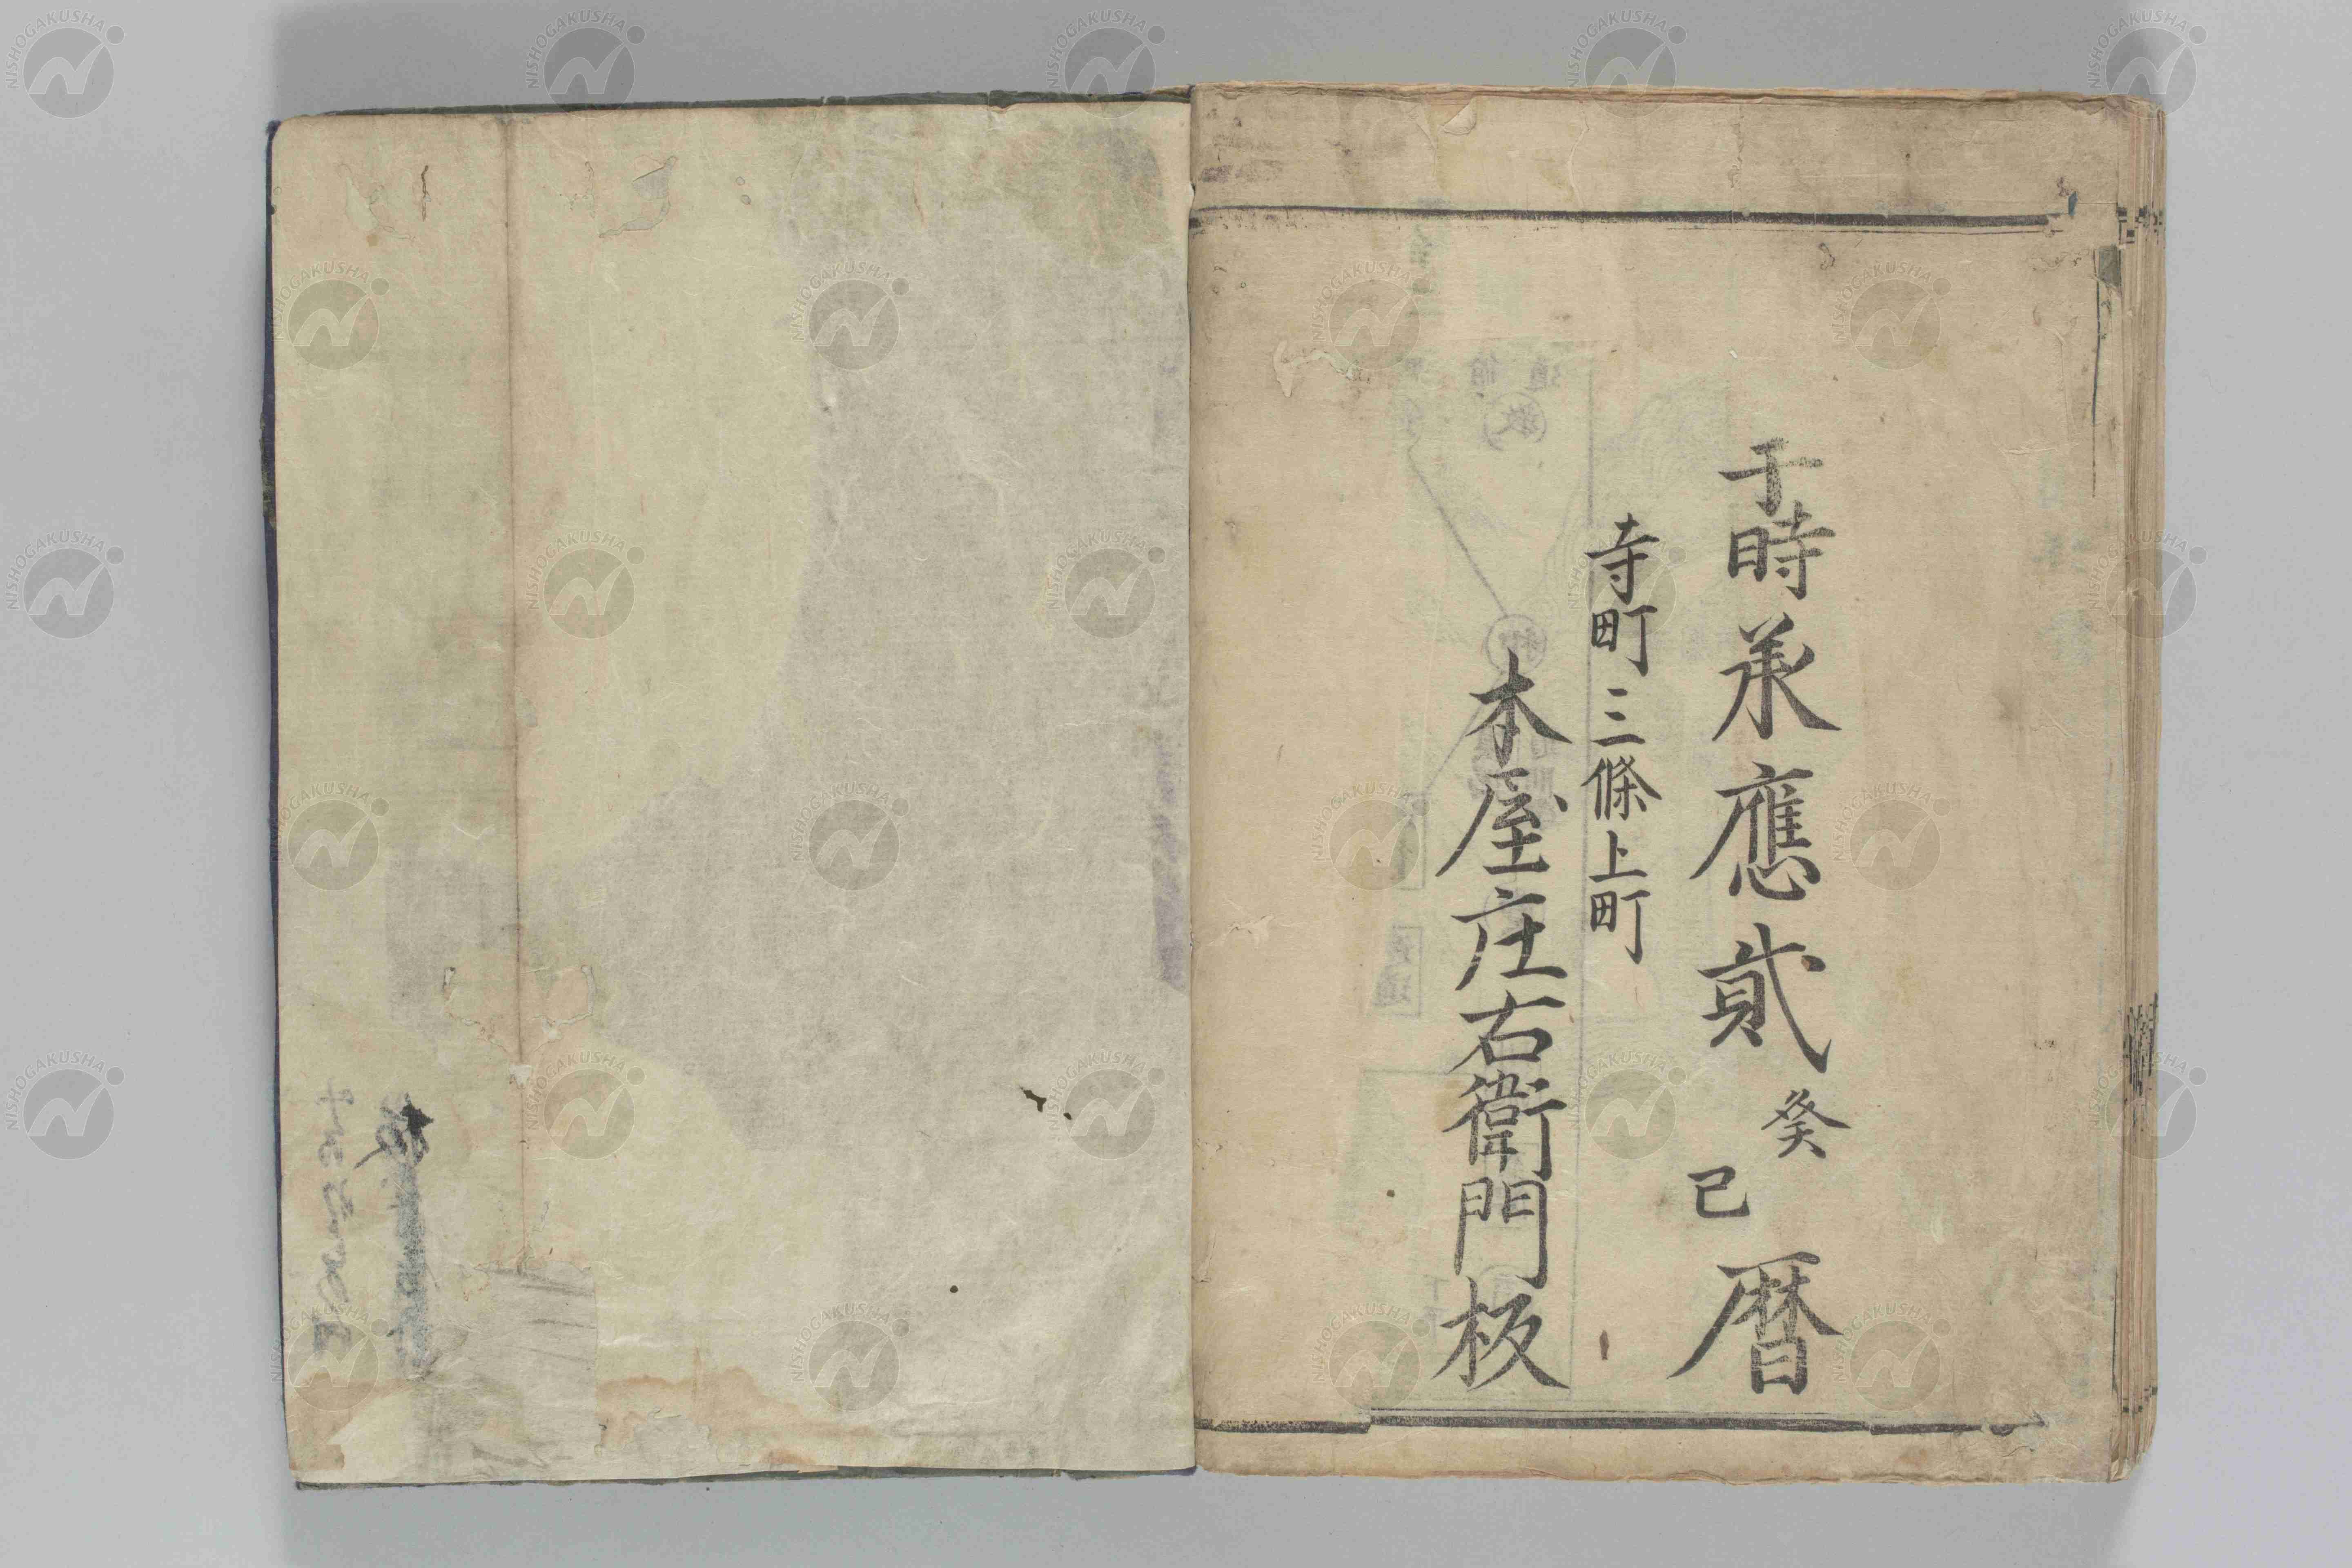 于時承應貳癸巳暦
寺町三條上町
本屋庄右衛門板
NISHOGAKUSHA